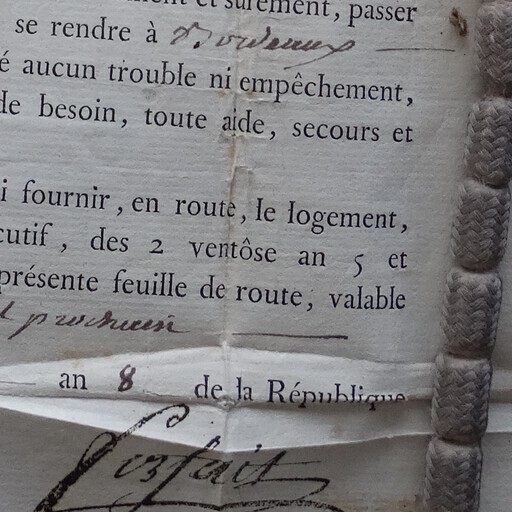 et surement, passer
se rendre à Bordeaux
é aucun trouble ni empêchement,
de besoin, toute aide, secours et
i fournir, en route, le logement,
cutif, des 2 ventôse an 5 et
présente feuille de route, valable
prochain
an 8 de la République